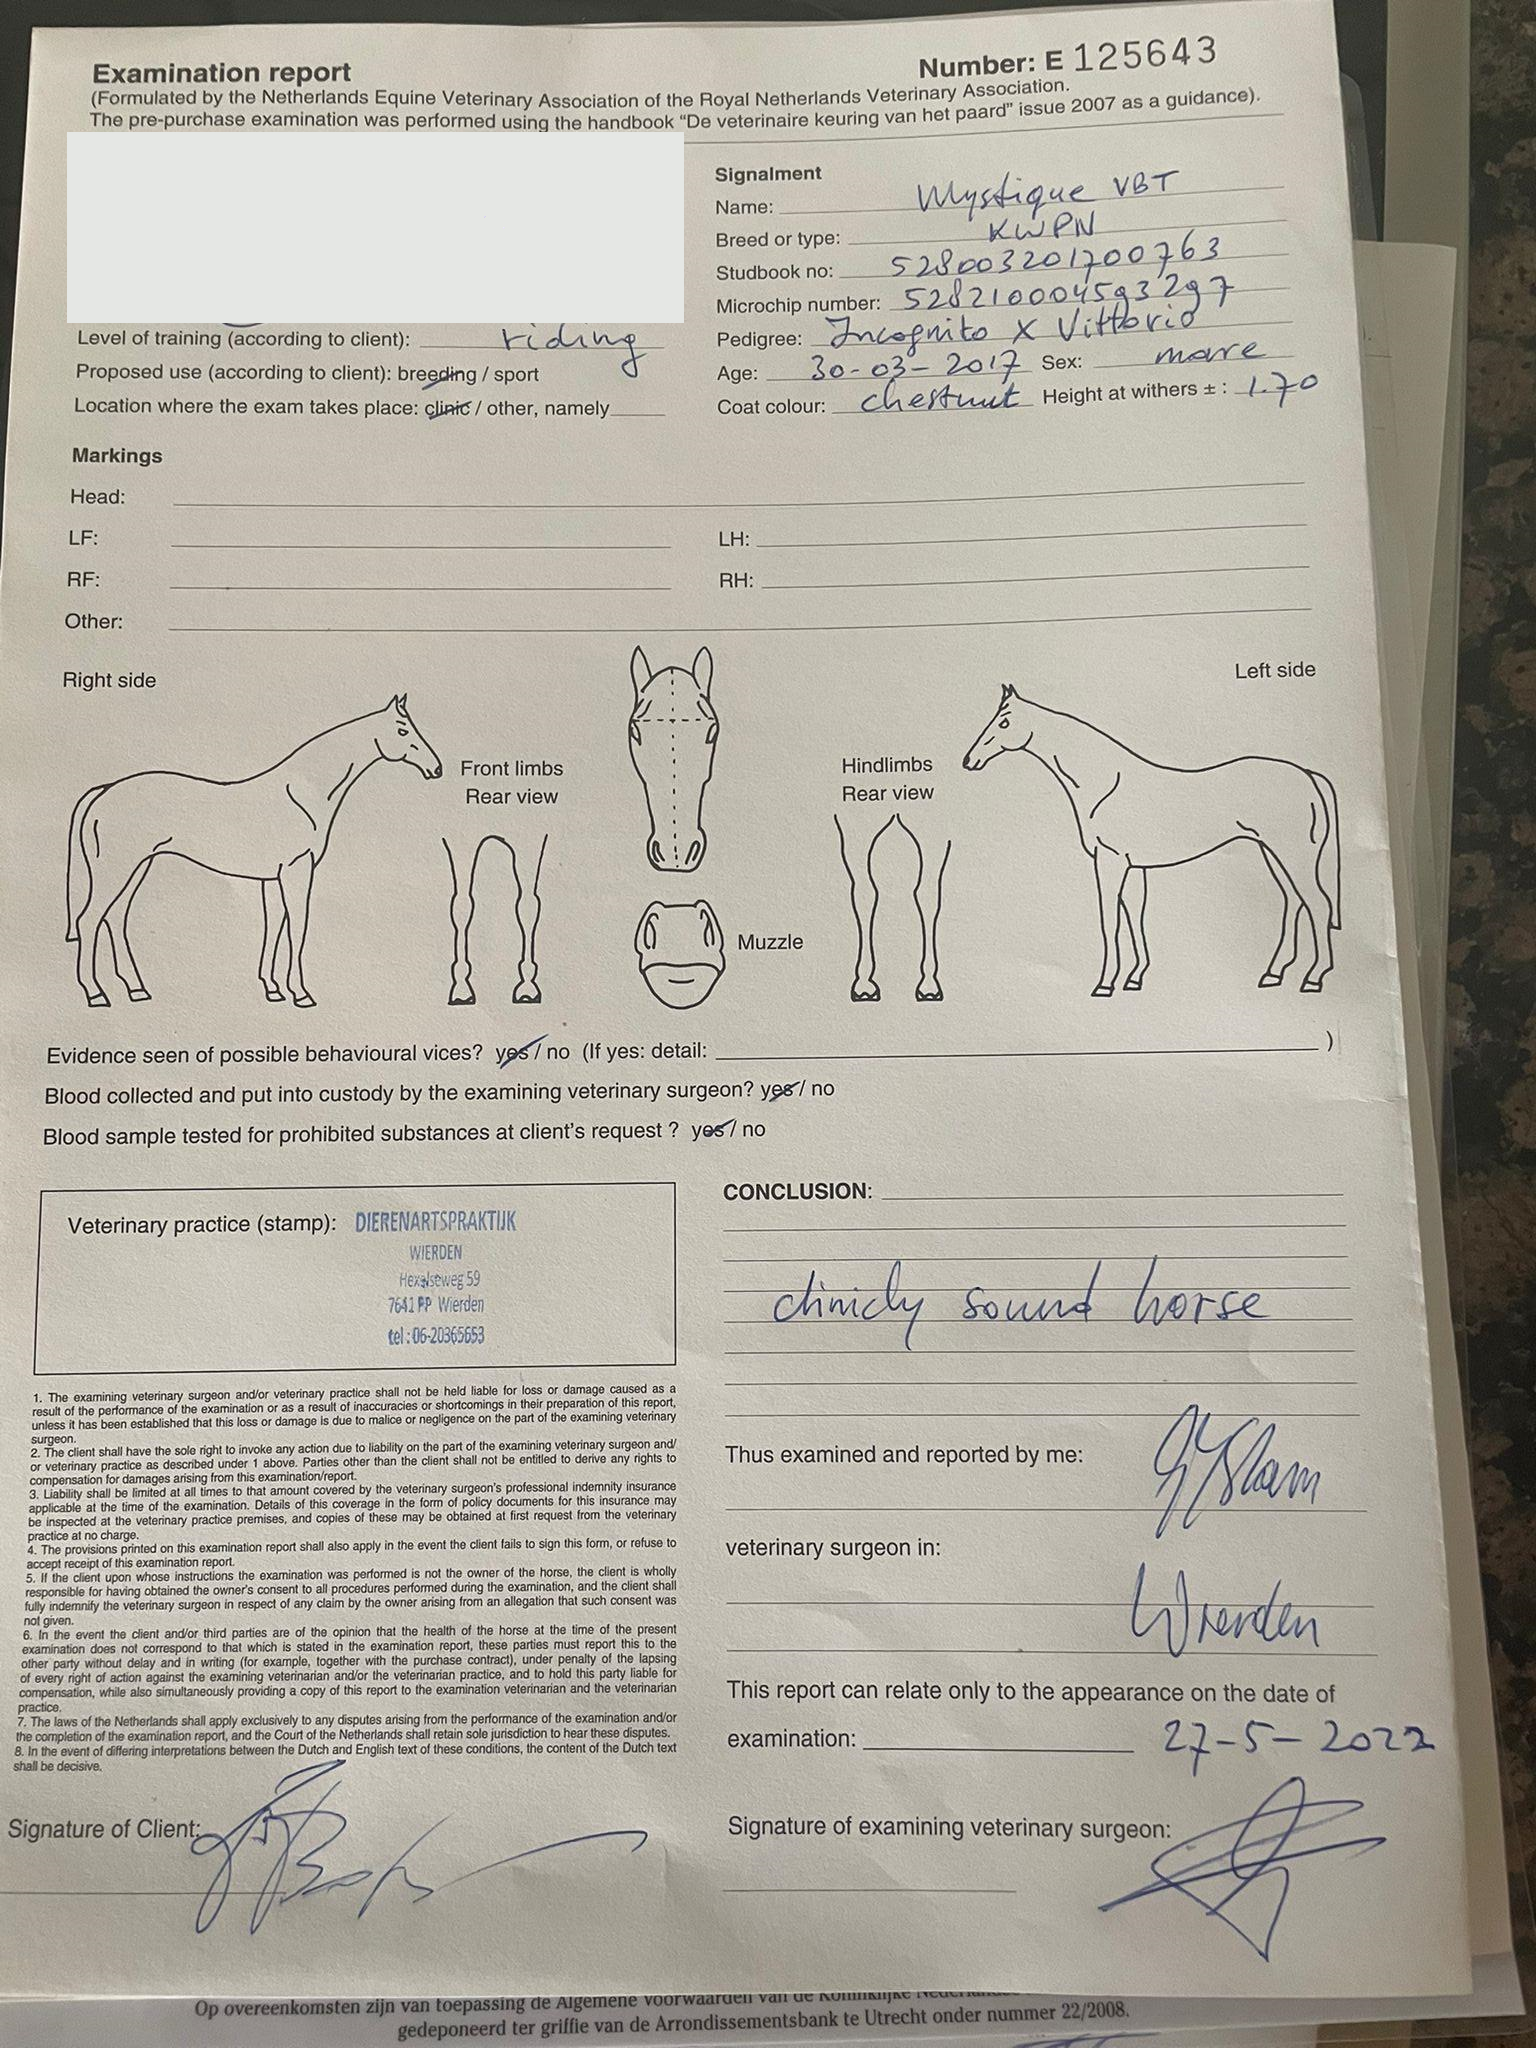 Examination report
Number: E 125643
(Formulated by the Netherlands Equine Veterinary Association of the Royal Netherlands Veterinary Association.
The pre-purchase examination was performed using the handbook “De veterinaire keuring van het paard” issue 2007 as a guidance).
Level of training (according to client): riding
Proposed use (according to client): breeding / sport
Location where the exam takes place: clinic / other, namely
Signalment
Name: Mystique VBT
Breed or type: KWPN
Studbook no: 528003201700763
Microchip number: 528210004593297
Pedigree: Incognito X Vittorio
Age: 30-03-2017 Sex: mare
Coat colour: chestnut Height at withers ± : 1.70
Markings
Head:
LF:
LH:
RF:
RH:
Other:
Right side
Left side
Front limbs
Rear view
Hindlimbs
Rear view
Muzzle
Evidence seen of possible behavioural vices? yes / no (If yes: detail: )
Blood collected and put into custody by the examining veterinary surgeon? yes / no
Blood sample tested for prohibited substances at client's request ? yes / no
Veterinary practice (stamp): DIERENARTSPRAKTIJK
WIERDEN
Hexelseweg 59
7641 PP Wierden
tel : 06-20365653
1. The examining veterinary surgeon and/or veterinary practice shall not be held liable for loss or damage caused as a
result of the performance of the examination or as a result of inaccuracies or shortcomings in their preparation of this report,
unless it has been established that this loss or damage is due to malice or negligence on the part of the examining veterinary
surgeon.
2. The client shall have the sole right to invoke any action due to liability on the part of the examining veterinary surgeon and/
or veterinary practice as described under 1 above. Parties other than the client shall not be entitled to derive any rights to
compensation for damages arising from this examination/report.
3. Liability shall be limited at all times to that amount covered by the veterinary surgeon's professional indemnity insurance
applicable at the time of the examination. Details of this coverage in the form of policy documents for this insurance may
be inspected at the veterinary practice premises, and copies of these may be obtained at first request from the veterinary
practice at no charge.
4. The provisions printed on this examination report shall also apply in the event the client fails to sign this form, or refuse to
accept receipt of this examination report.
5. If the client upon whose instructions the examination was performed is not the owner of the horse, the client is wholly
responsible for having obtained the owner's consent to all procedures performed during the examination, and the client shall
fully indemnify the veterinary surgeon in respect of any claim by the owner arising from an allegation that such consent was
not given.
6. In the event the client and/or third parties are of the opinion that the health of the horse at the time of the present
examination does not correspond to that which is stated in the examination report, these parties must report this to the
other party without delay and in writing (for example, together with the purchase contract), under penalty of the lapsing
of every right of action against the examining veterinarian and/or the veterinarian practice, and to hold this party liable for
compensation, while also simultaneously providing a copy of this report to the examination veterinarian and the veterinarian
practice.
7. The laws of the Netherlands shall apply exclusively to any disputes arising from the performance of the examination and/or
the completion of the examination report, and the Court of the Netherlands shall retain sole jurisdiction to hear these disputes.
8. In the event of differing interpretations between the Dutch and English text of these conditions, the content of the Dutch text
shall be decisive.
Signature of Client:
CONCLUSION:
clinicly sound horse
Thus examined and reported by me:
veterinary surgeon in:
Wierden
This report can relate only to the appearance on the date of
examination: 27-5-2022
Signature of examining veterinary surgeon:
Op overeenkomsten zijn van toepassing de Algemene Voorwaarden van de Koninklijke
gedeponeerd ter griffie van de Arrondissementsbank te Utrecht onder nummer 22/2008.